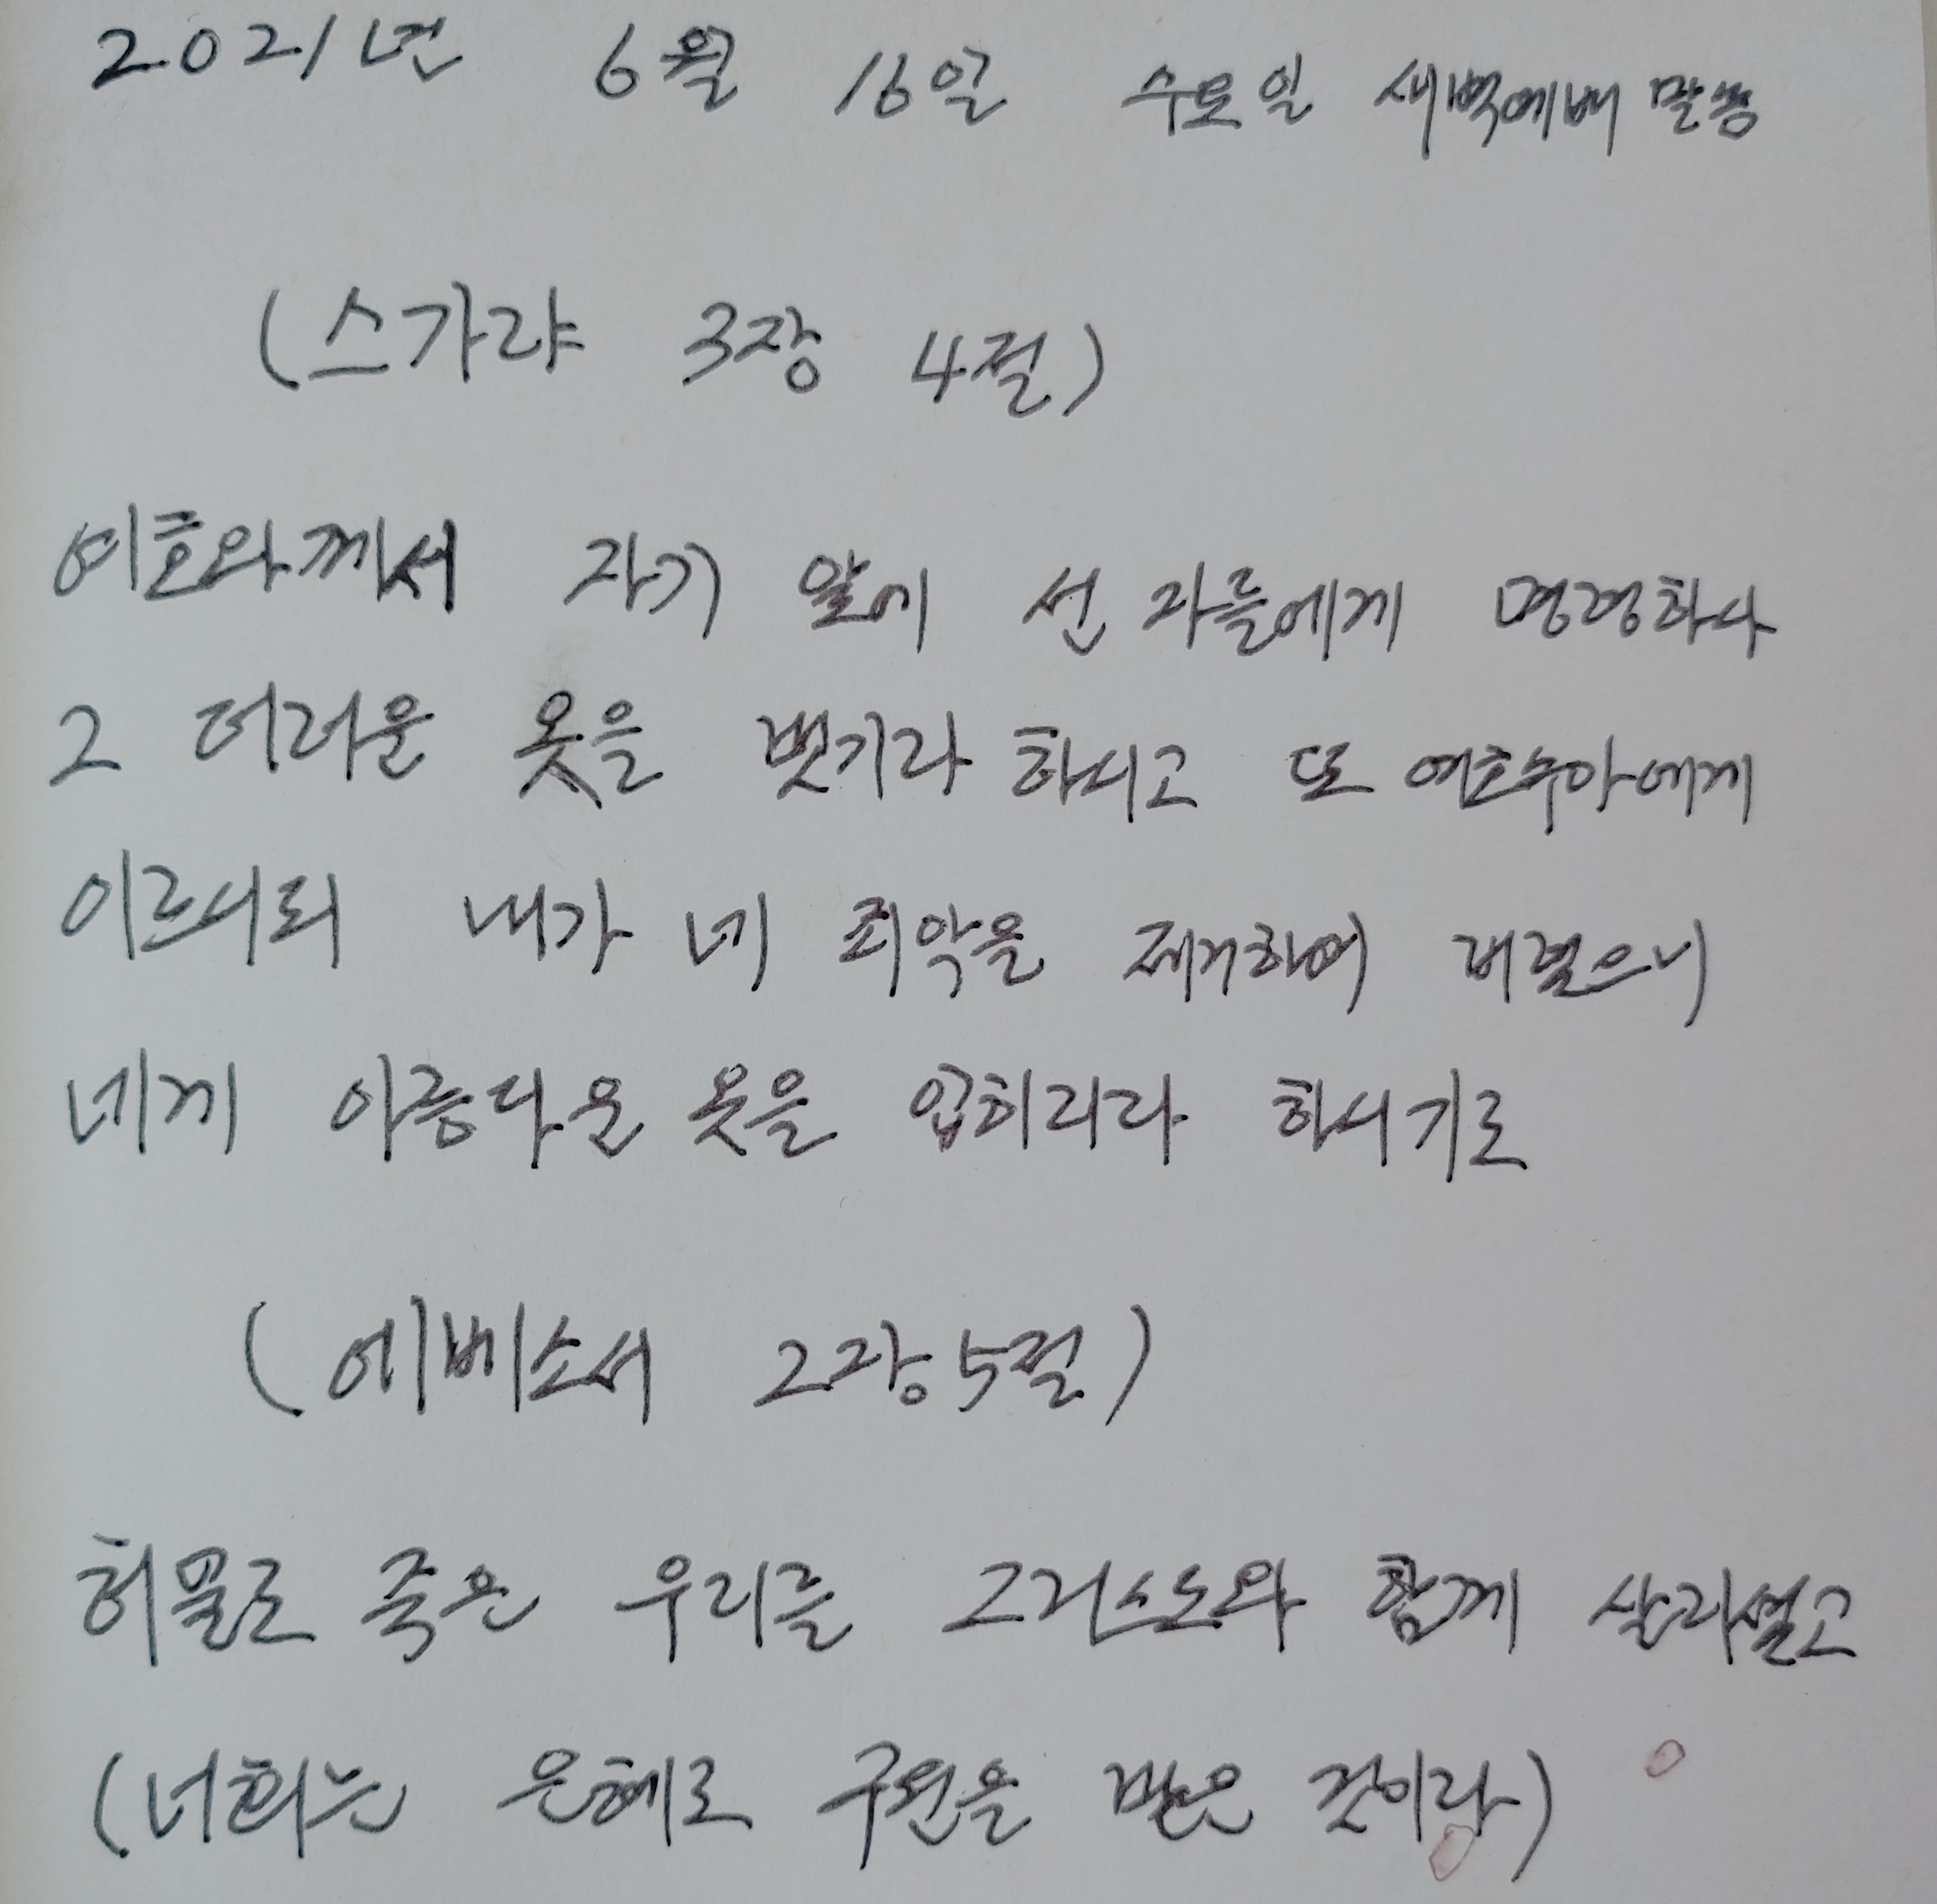 2021년 6월 16일 수요일 새벽예배 말씀
(스가랴 3장 4절)
여호와께서 자기 앞에 선 자들에게 명령하사
그 더러운 옷을 벗기라 하시고 또 여호수아에게
이르시되 내가 네 죄악을 제거하여 버렸으니
네게 아름다운 옷을 입히리라 하시기로
(에베소서 2장 5절)
허물로 죽은 우리를 그리스도와 함께 살리셨고
(너희는 은혜로 구원을 받은 것이라)